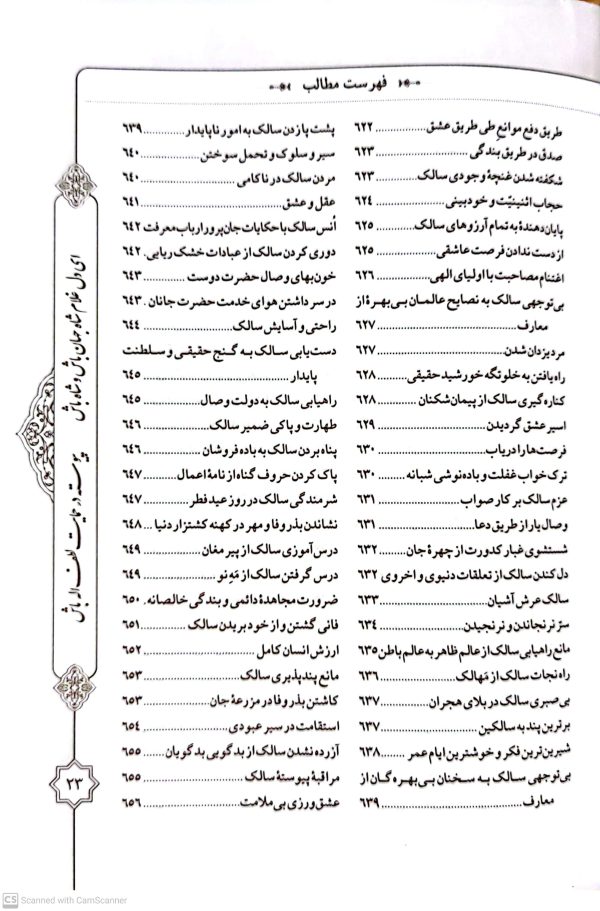 فهرست مطالب
طریق دفع موانعِ طی طریق عشق .............. ۶۲۲
صدق در طریق بندگی .............. ۶۲۳
شکفته شدن غنچهٔ وجودی سالک .............. ۶۲۳
حجاب اثنینیّت و خودبینی .............. ۶۲۴
پایان دهندهٔ به تمام آرزوهای سالک .............. ۶۲۵
از دست ندادن فرصت عاشقی .............. ۶۲۵
اغتنام مصاحبت با اولیای الهی .............. ۶۲۶
بی‌توجهی سالک به نصایح عالمان بی‌بهرهٔ از
معارف .............. ۶۲۷
مرد یزدان شدن .............. ۶۲۷
راه یافتن به خلوتگه خورشید حقیقی .............. ۶۲۸
کناره گیری سالک از پیمان شکنان .............. ۶۲۸
اسیر عشق گردیدن .............. ۶۲۹
فرصت‌ها را دریاب .............. ۶۳۰
ترک خواب غفلت و باده نوشی شبانه .............. ۶۳۰
عزم سالک بر کار صواب .............. ۶۳۱
وصال یار از طریق دعا .............. ۶۳۱
شستشوی غبار کدورت از چهرهٔ جان .............. ۶۳۲
دل کندن سالک از تعلقات دنیوی و اخروی ۶۳۲
سالک عرش آشیان .............. ۶۳۳
سرّ نرنجاندن و نرنجیدن .............. ۶۳۴
مانع راهیابی سالک از عالم ظاهر به عالم باطن ۶۳۵
راه نجات سالک از مَهالک .............. ۶۳۶
بی صبری سالک در بلای هجران .............. ۶۳۷
برترین پند به سالکین .............. ۶۳۷
شیرین‌ترین فکر و خوشترین ایام عمر .............. ۶۳۸
بی‌توجهی سالک به سخنان بی‌بهره‌گان از
معارف .............. ۶۳۹
پشت پا زدن سالک به امور ناپایدار .............. ۶۳۹
سیر و سلوک و تحمل سوختن .............. ۶۴۰
مردن سالک در ناکامی .............. ۶۴۰
عقل و عشق .............. ۶۴۱
اُنس سالک با حکایات جان پرور ارباب معرفت ۶۴۲
دوری کردن سالک از عبادات خشک ریایی . ۶۴۲
خون بهای وصال حضرت دوست .............. ۶۴۳
در سر داشتن هوای خدمت حضرت جانان . ۶۴۳
راحتی و آسایش سالک .............. ۶۴۴
دست‌یابی سالک به گنج حقیقی و سلطنت
پایدار .............. ۶۴۵
راهیابی سالک به دولت وصال .............. ۶۴۵
طهارت و پاکی ضمیر سالک .............. ۶۴۶
پناه بردن سالک به باده فروشان .............. ۶۴۶
پاک کردن حروف گناه از نامهٔ اعمال .............. ۶۴۷
شرمندگی سالک در روز عید فطر .............. ۶۴۷
نشاندن بذر وفا و مهر در کهنه کشتزار دنیا ... ۶۴۸
درس آموزی سالک از پیر مغان .............. ۶۴۹
درس گرفتن سالک از مَهِ نو .............. ۶۴۹
ضرورت مجاهدهٔ دائمی و بندگی خالصانه . ۶۵۰
فانی گشتن و از خود بریدن سالک .............. ۶۵۱
ارزش انسان کامل .............. ۶۵۲
مانع پند پذیری سالک .............. ۶۵۳
کاشتن بذر وفا در مزرعهٔ جان .............. ۶۵۳
استقامت در سیر عبودی .............. ۶۵۴
آزرده نشدن سالک از بدگویی بدگویان .............. ۶۵۵
مراقبهٔ پیوستهٔ سالک .............. ۶۵۵
عشق ورزی بی ملامت .............. ۶۵۶
ای دل غلام شاه جهان باش و شاه باش
پیوسته در حمایت لطف اله باش
۲۳
CS Scanned with CamScanner